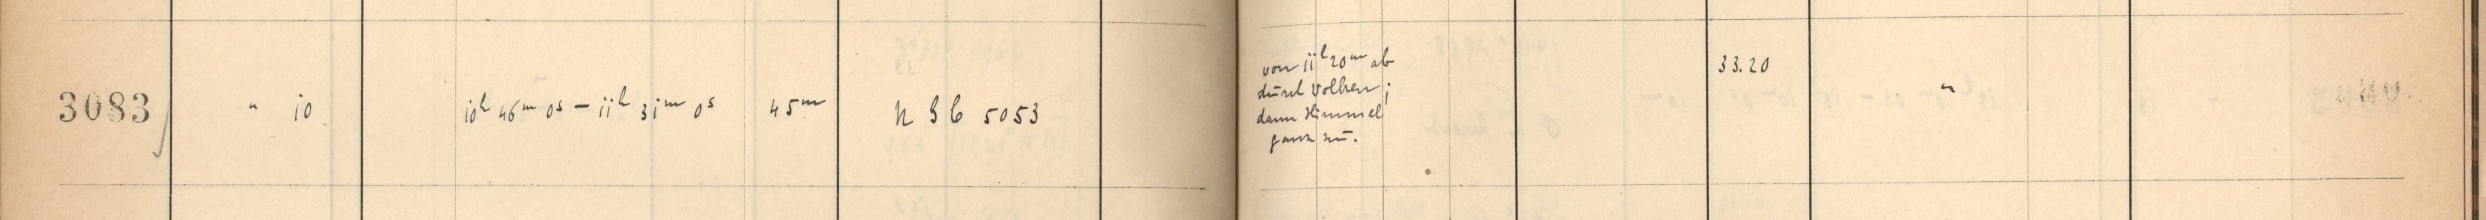 3083 " 10 10h 46m 0s – 11h 31m 0s 45m N G C 5053 33.20 "
von 11h 20m ab
durch Wolken;
dann Himmel
ganz zu.